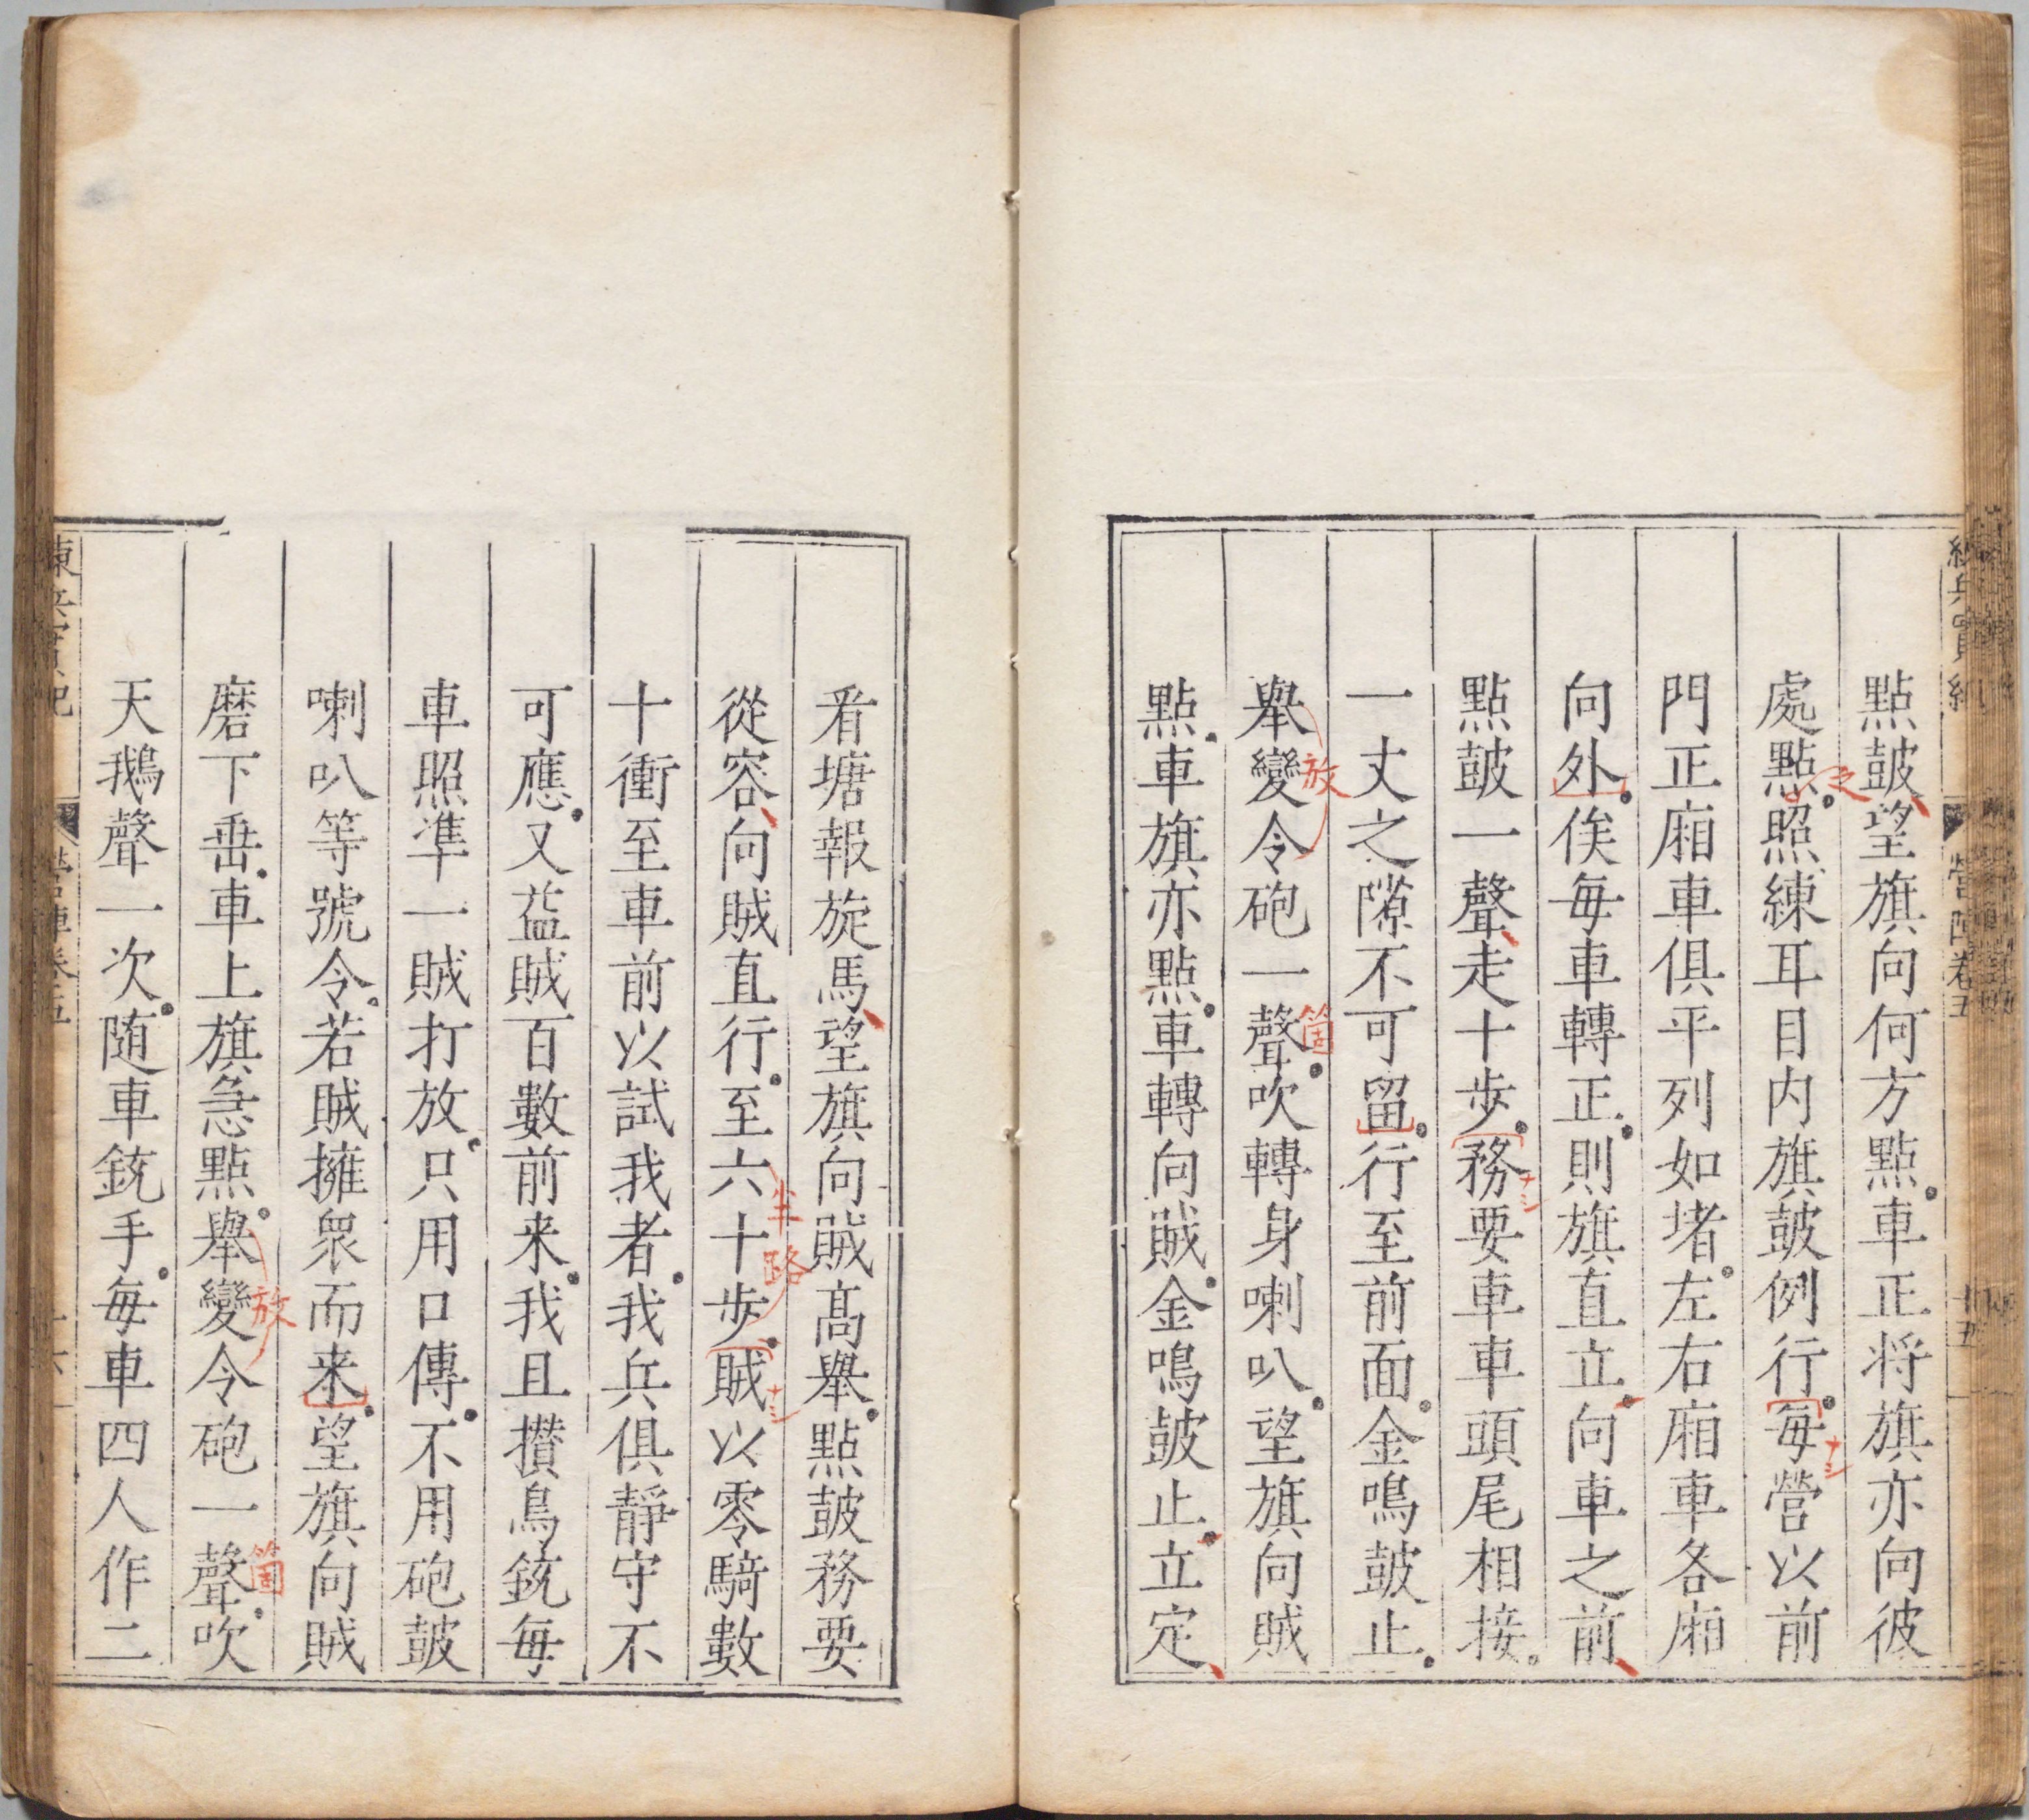 點皷望旗向何方點車正将旗亦向彼
處點照練耳目内旗皷例行每營以前
門正廂車俱平列如堵左右廂車各廂
向外俟每車轉正則旗直立向車之前
點皷一聲走十步務要車車頭尾相接
一丈之隙不可留行至前面金鳴皷止
舉變令砲一聲吹轉身喇叭望旗向賊
點車旗亦點車轉向賊金鳴皷止立定
看塘報旋馬望旗向賊髙舉點皷務要
從容向賊直行至六十步賊以零騎數
十衝至車前以試我者我兵俱靜守不
可應又益賊百數前来我且攢鳥銃每
車照凖一賊打放只用口傳不用砲皷
喇叭等號令若賊擁衆而来望旗向賊
磨下垂車上旗急點舉變令砲一聲吹
天鵝聲一次随車銃手每車四人作二
放
箇
ナシ
ナシ
半路
ナシ
放
箇
營陣卷五
十五